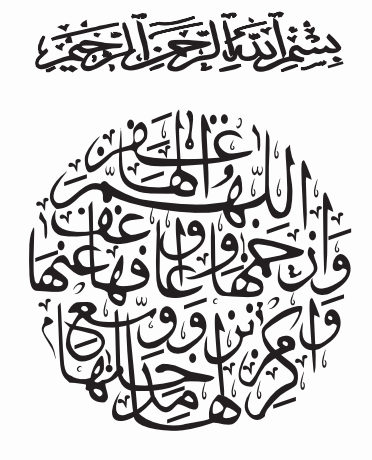 بسم الله الرحمن الرحيم
اللهم اغفر لها
وارحمها وعافها واعف عنها
واكرم نزلها ووسع مدخلها